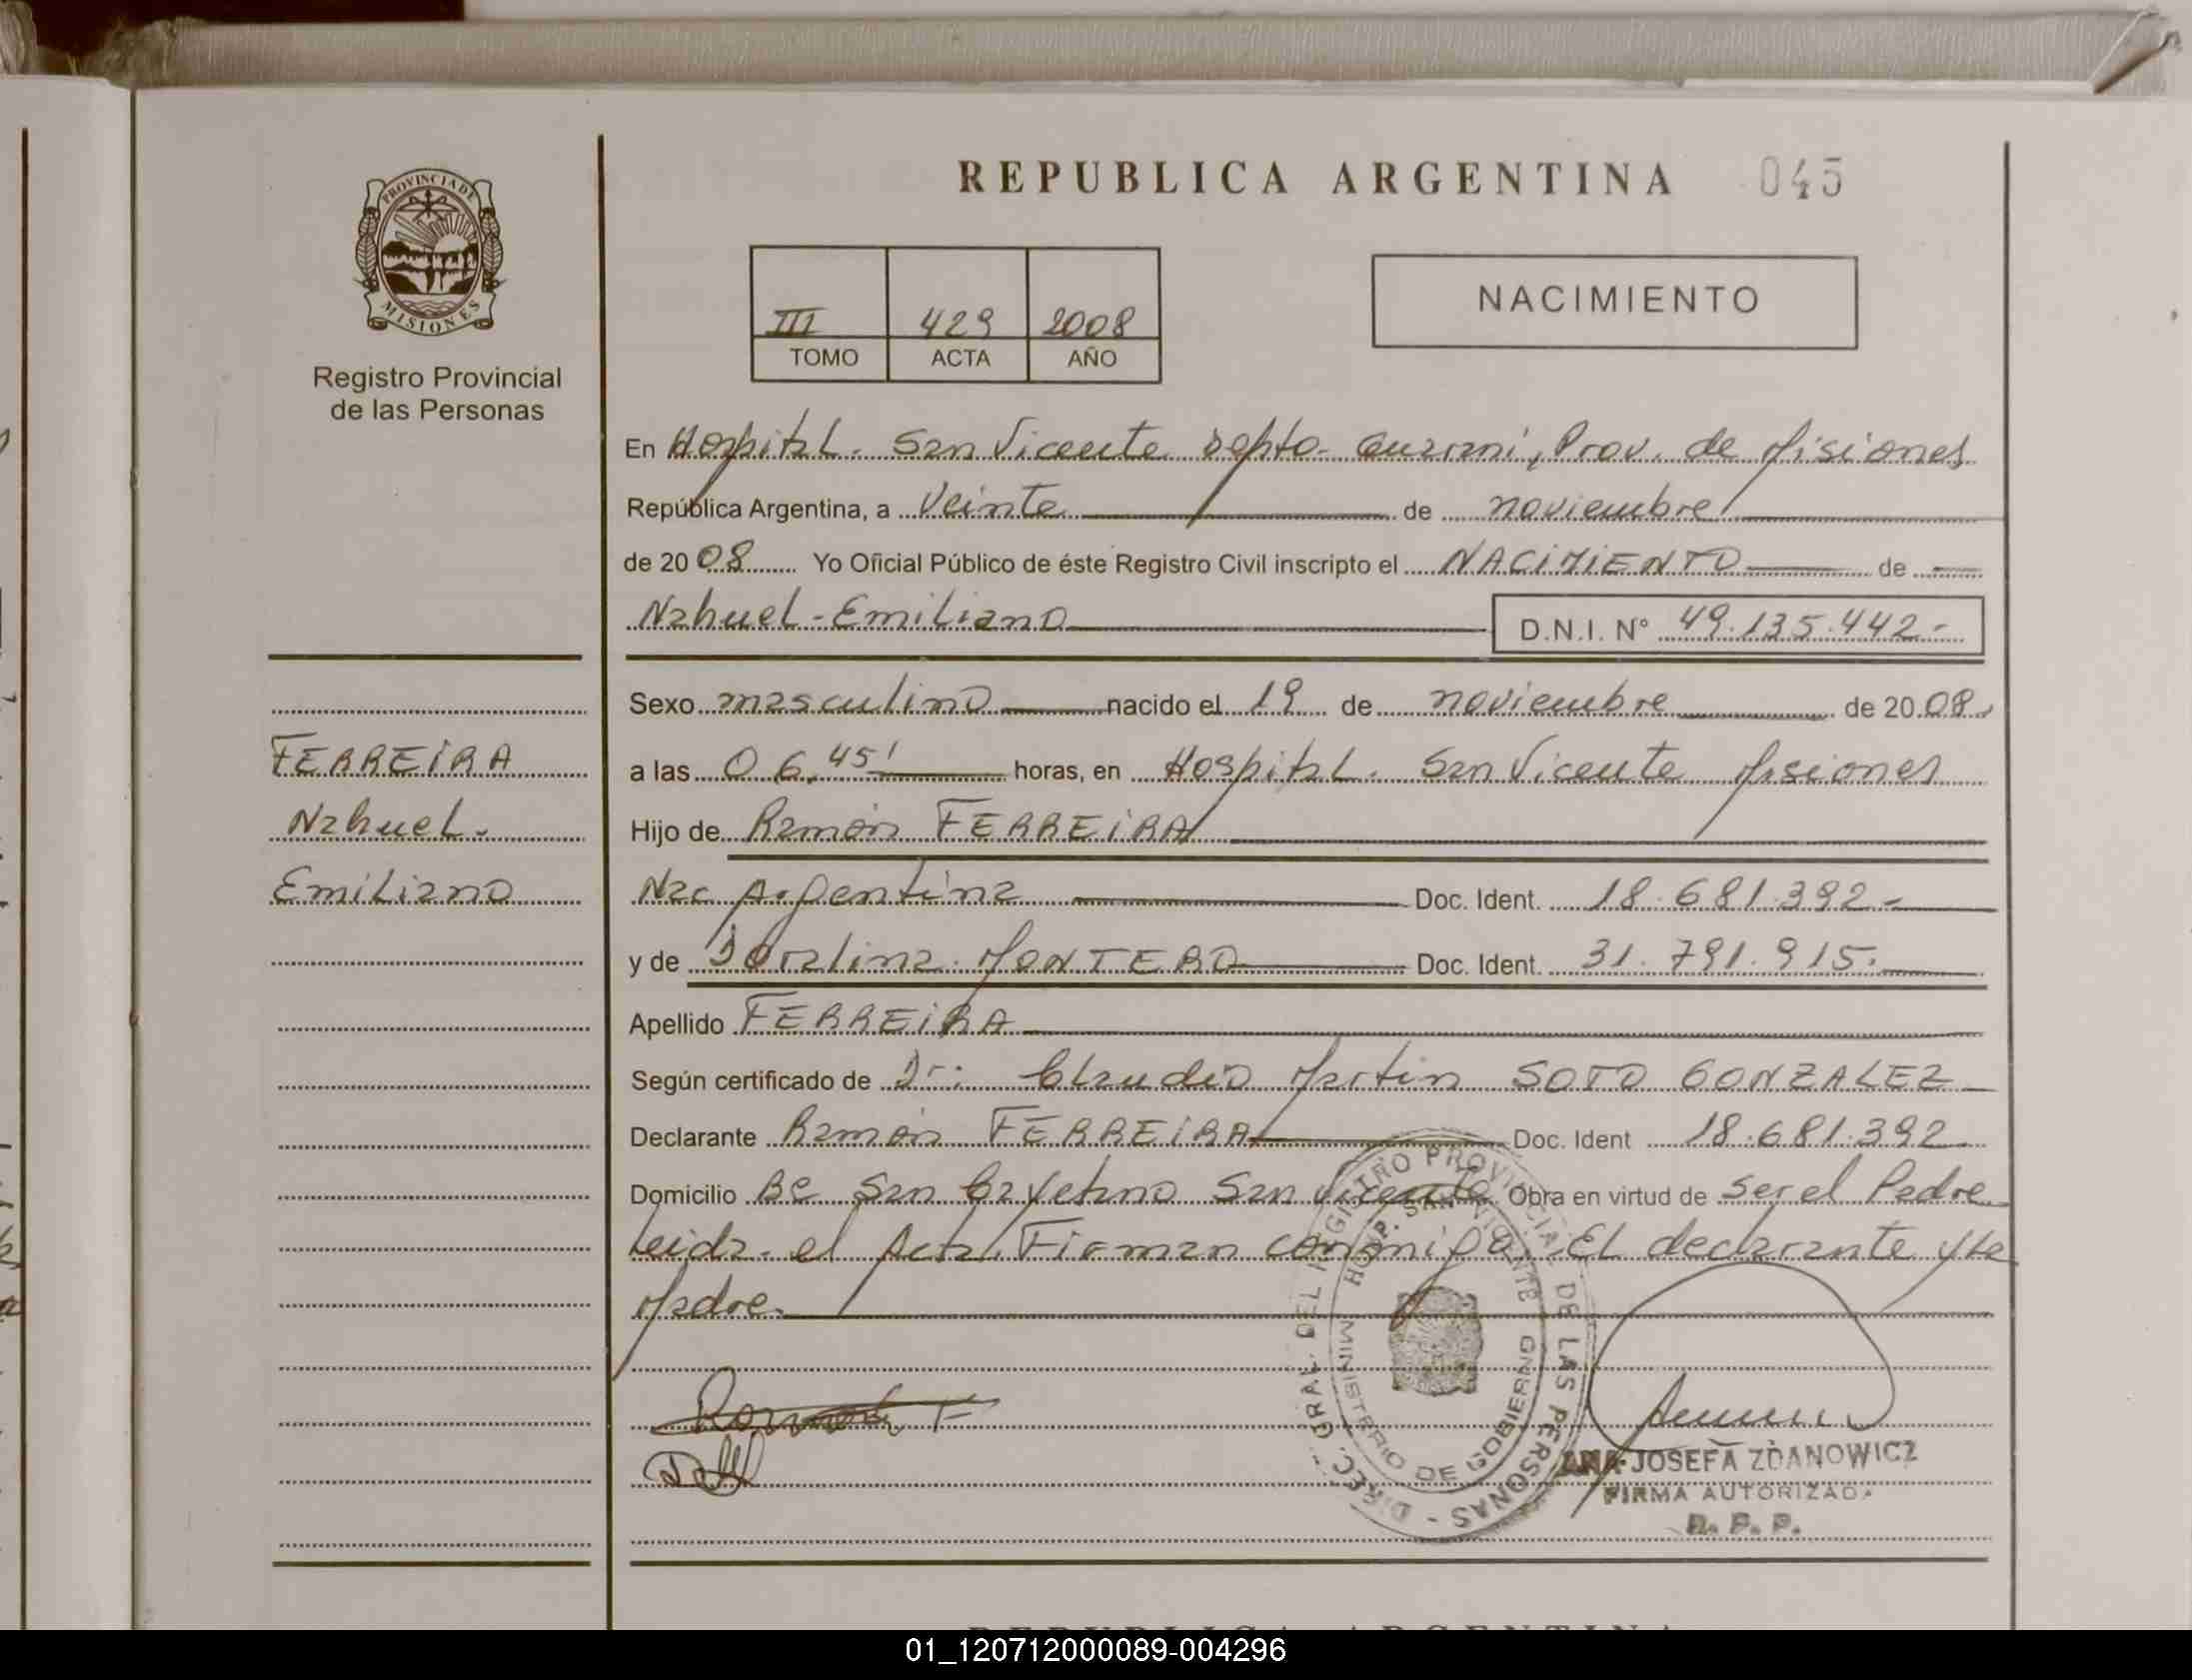 REPUBLICA ARGENTINA 045
PROVINCIA DE
MISIONES
Registro Provincial
de las Personas
III 429 2008
TOMO ACTA AÑO
NACIMIENTO
En Hospital. San Vicente Depto. Guarani, Prov. de Misiones
República Argentina, a Veinte de noviembre
de 2008 Yo Oficial Público de éste Registro Civil inscripto el NACIMIENTO de
Nahuel-Emiliano D.N.I. N° 49.135.442.-
FERREIRA
Nahuel.
Emiliano
Sexo masculino nacido el 19 de noviembre de 2008
a las 06,45' horas, en Hospital. San Vicente Misiones
Hijo de Ramón FERREIRA
Nac Argentina Doc. Ident. 18.681.392.-
y de Doralina MONTERO Doc. Ident. 31.791.915.
Apellido FERREIRA
Según certificado de Dr. Claudio Martin SOTO GONZALEZ
Declarante Ramón FERREIRA Doc. Ident 18.681.392
Domicilio Bº San Cayetano San Vicente Obra en virtud de ser el Padre
Leida el Acta, Firman conmigo. El declarante y la
Madre.
DIREC. GRAL. DEL REGISTRO PROVINCIAL DE LAS PERSONAS -
HOSP. SAN VICENTE
MINISTERIO DE GOBIERNO
ANA JOSEFA ZDANOWICZ
FIRMA AUTORIZADA
R. P. P.
REPUBLICA ARGENTINA
01_120712000089-004296